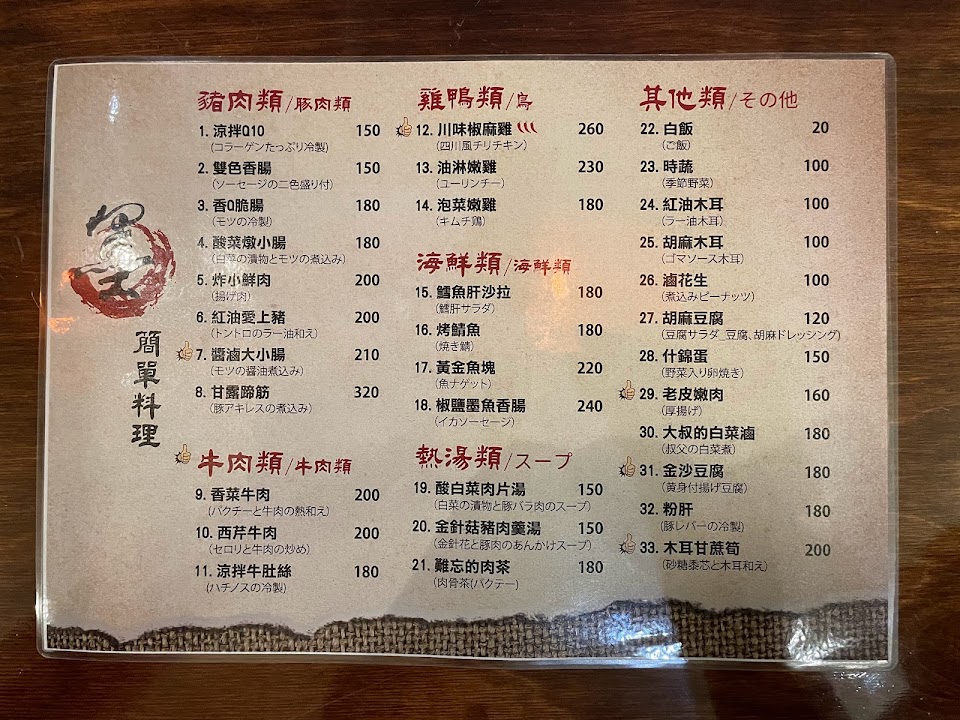 簡單料理
豬肉類/豚肉類
1. 涼拌Q10 150
(コラーゲンたっぷり冷製)
2. 雙色香腸 150
(ソーセージの二色盛り付)
3. 香Q脆腸 180
(モツの冷製)
4. 酸菜燉小腸 180
(白菜の漬物とモツの煮込み)
5. 炸小鮮肉 200
(揚げ肉)
6. 紅油愛上豬 200
(トントロのラー油和え)
7. 醬滷大小腸 210
(モツの醬油煮込み)
8. 甘露蹄筋 320
(豚アキレスの煮込み)
牛肉類/牛肉類
9. 香菜牛肉 200
(パクチーと牛肉の熱和え)
10. 西芹牛肉 200
(セロリと牛肉の炒め)
11. 涼拌牛肚絲 180
(ハチノスの冷製)
雞鴨類/鳥
12. 川味椒麻雞 260
(四川風チリチキン)
13. 油淋嫩雞 230
(ユーリンチー)
14. 泡菜嫩雞 180
(キムチ鶏)
海鮮類/海鮮類
15. 鱈魚肝沙拉 180
(鱈肝サラダ)
16. 烤鯖魚 180
(焼き鯖)
17. 黃金魚塊 220
(魚ナゲット)
18. 椒鹽墨魚香腸 240
(イカソーセージ)
熱湯類/スープ
19. 酸白菜肉片湯 150
(白菜の漬物と豚バラ肉のスープ)
20. 金針菇豬肉羹湯 150
(金針花と豚肉のあんかけスープ)
21. 難忘的肉茶 180
(肉骨茶(パクテー)
其他類/その他
22. 白飯 20
(ご飯)
23. 時蔬 100
(季節野菜)
24. 紅油木耳 100
(ラー油木耳)
25. 胡麻木耳 100
(ゴマソース木耳)
26. 滷花生 100
(煮込みピーナッツ)
27. 胡麻豆腐 120
(豆腐サラダ_豆腐、胡麻ドレッシング)
28. 什錦蛋 150
(野菜入り卵焼き)
29. 老皮嫩肉 160
(厚揚げ)
30. 大叔的白菜滷 180
(叔父の白菜煮)
31. 金沙豆腐 180
(黄身付揚げ豆腐)
32. 粉肝 180
(豚レバーの冷製)
33. 木耳甘蔗筍 200
(砂糖黍芯と木耳和え)